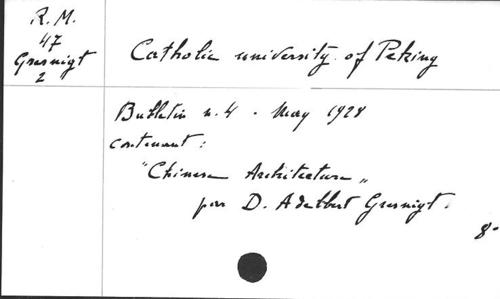 R.M.
47
Gresnigt
2
Catholic university of Peking
Bulletin n. 4 - May 1928
contenant :
"Chinese Architecture"
par D. Adelbert Gresnigt.
8°